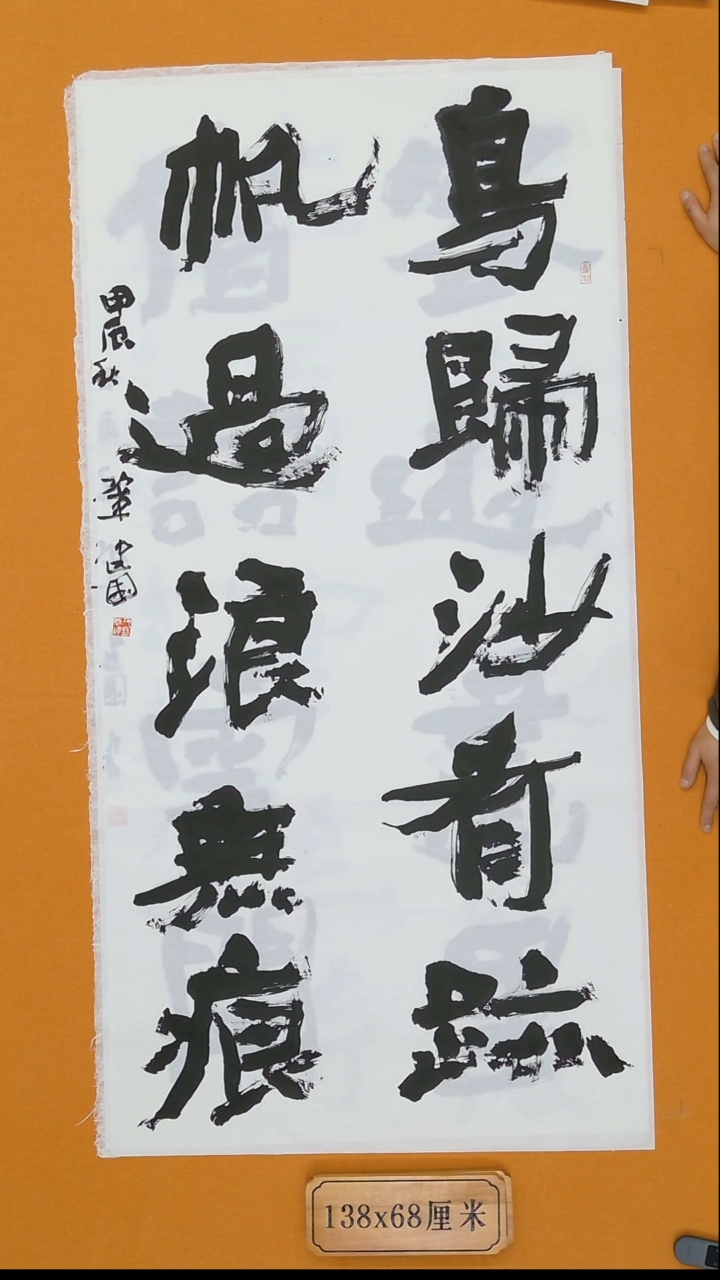 鳥歸沙有跡
帆過浪無痕
甲辰秋 肇建國
138x68厘米